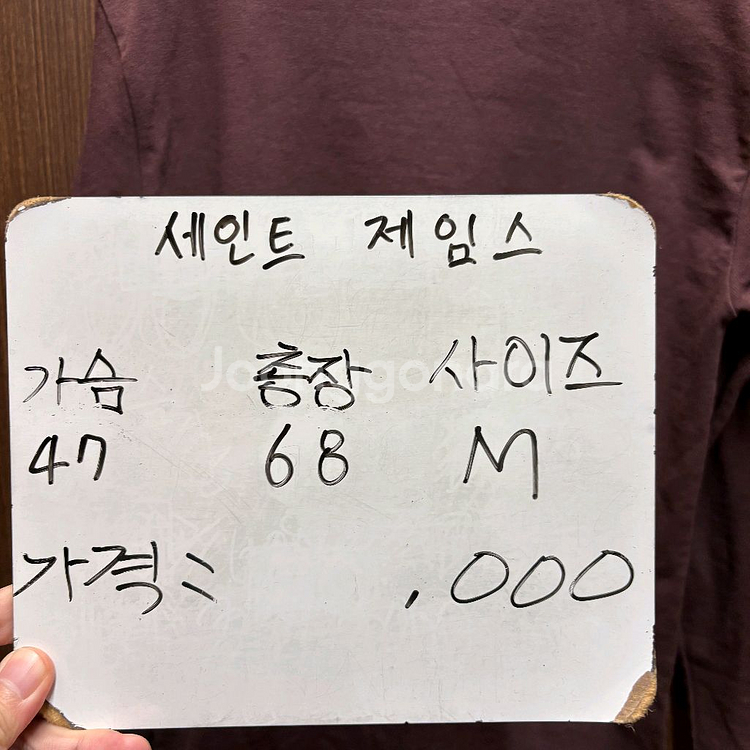 세인트 제임스
가슴 총장 사이즈
47 68 M
가격: ,000
Joongonara